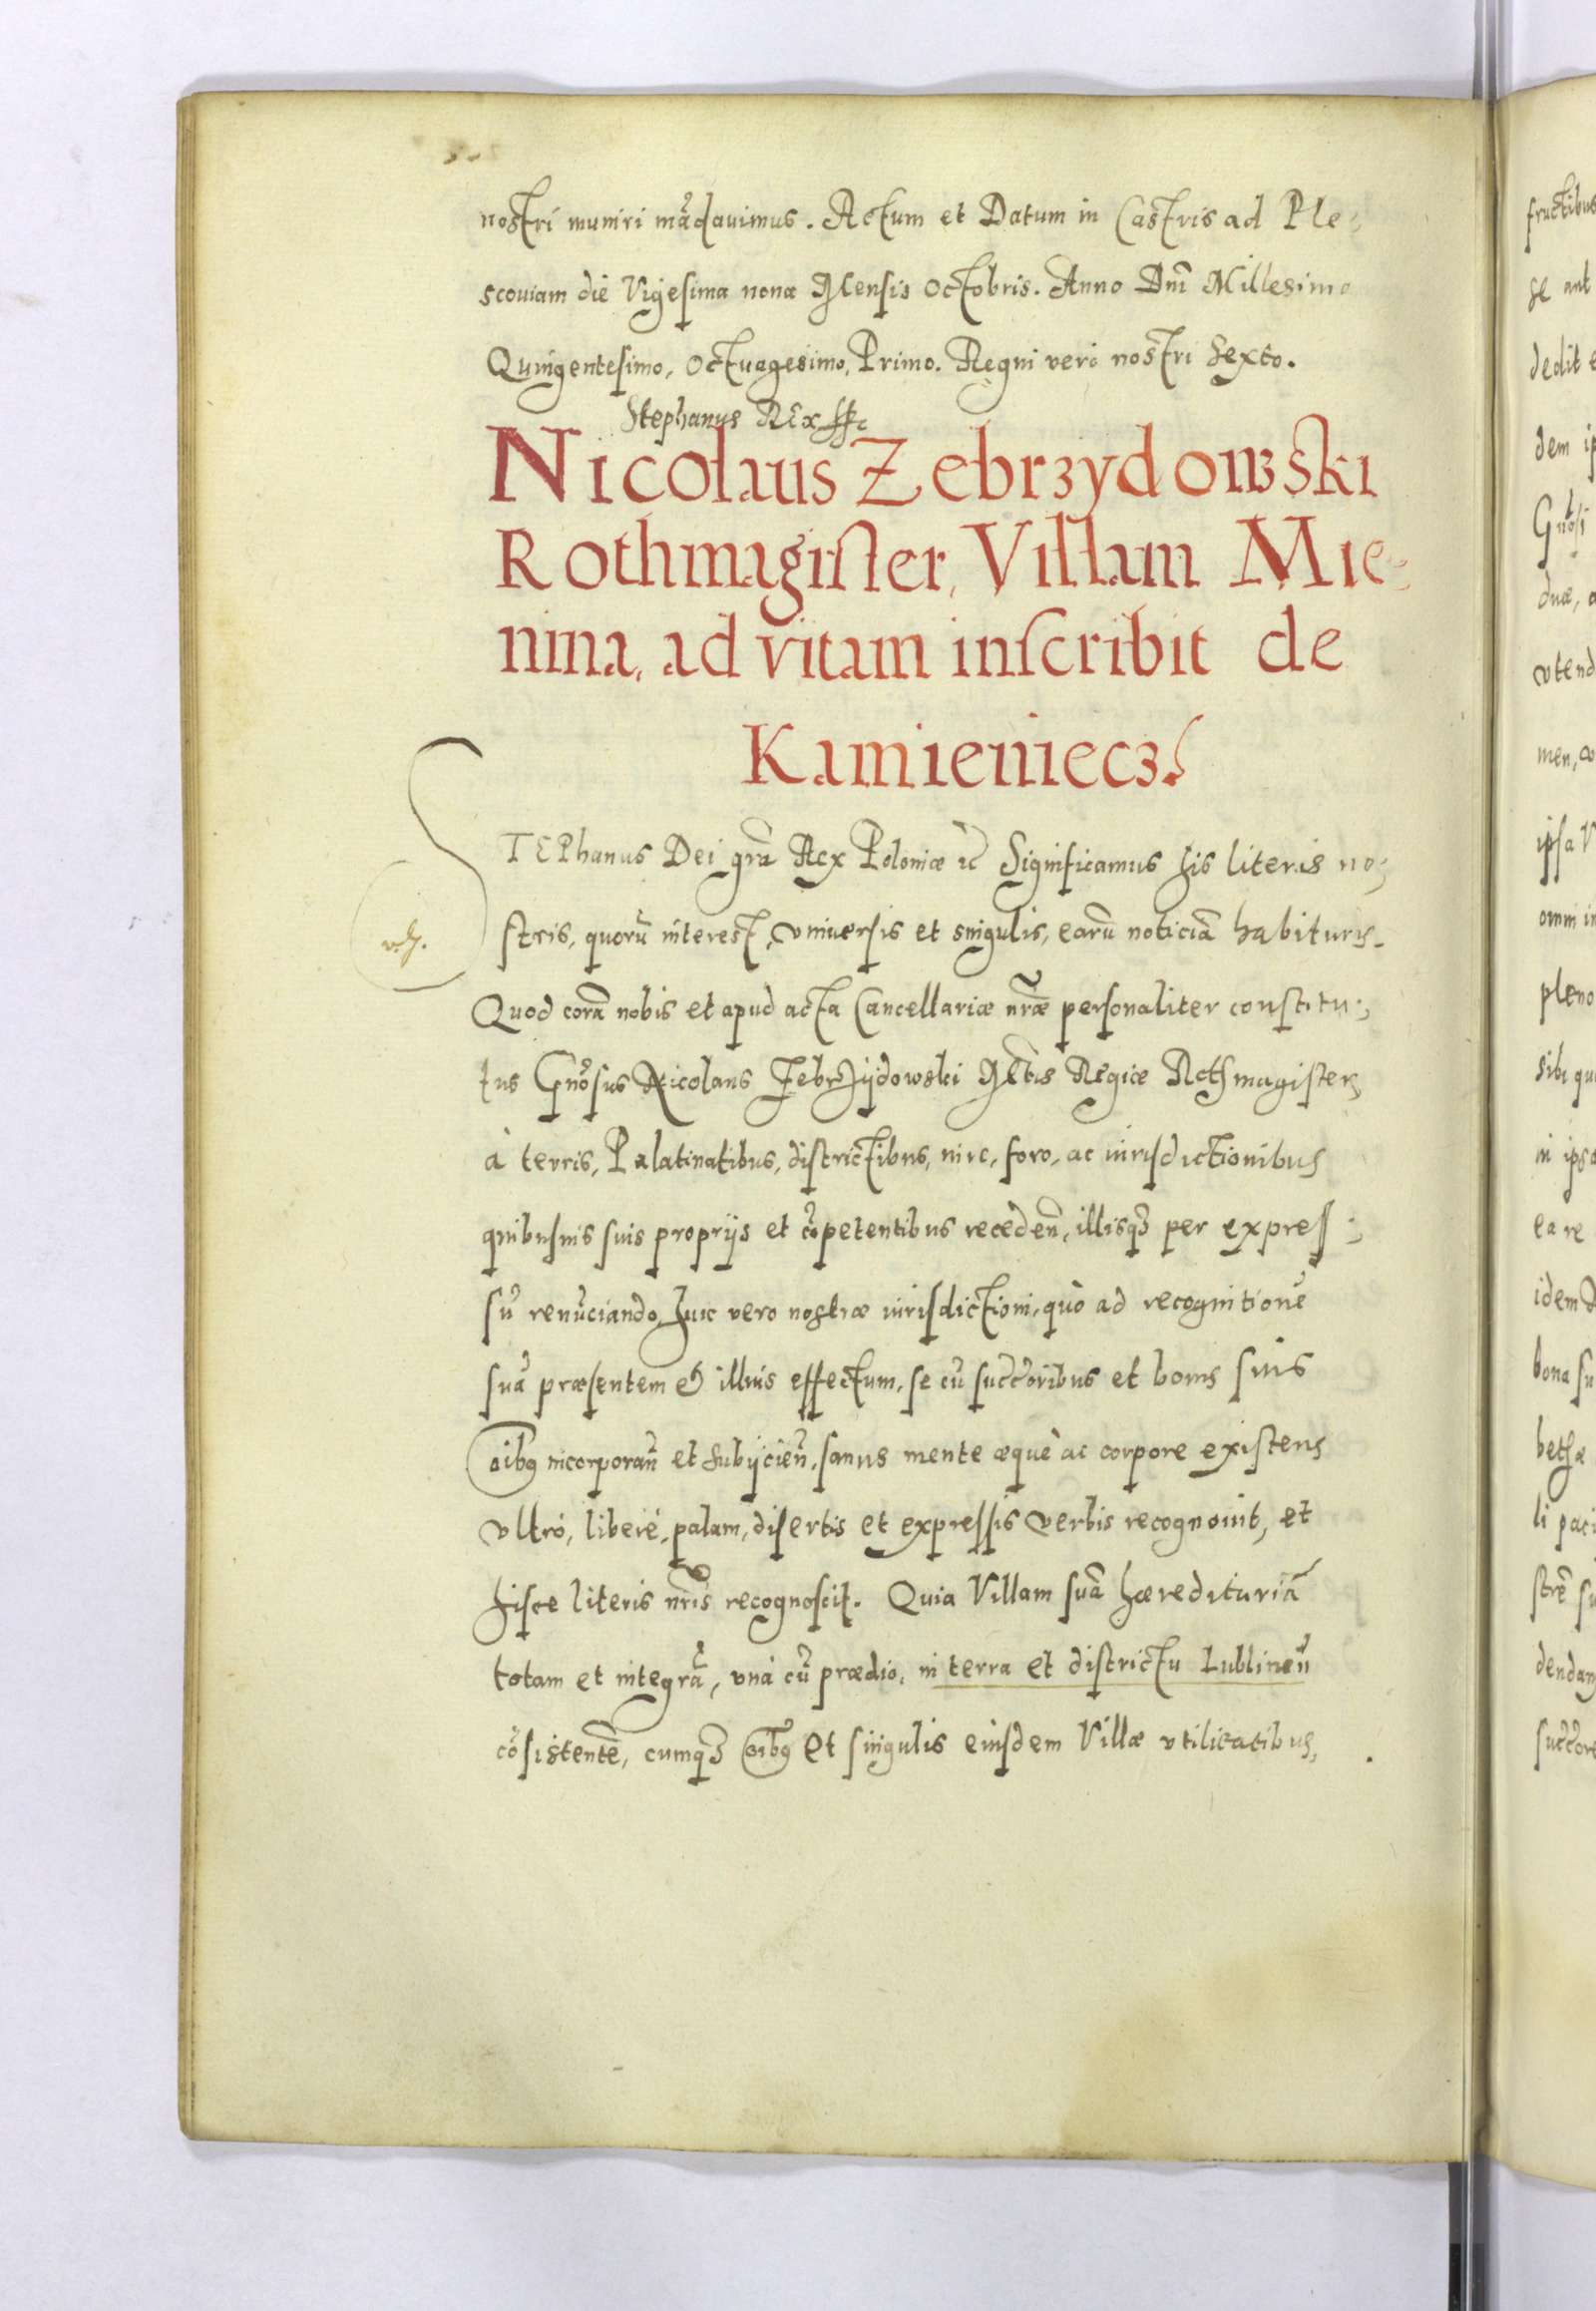 nostri muniri mādauimus. Actum et Datum in Castris ad Ple-
scouiam die Vigesima nona Mensis Octobris. Anno Dnī Millesimo
Quingentesimo, Octuagesimo, Primo. Regni vero nostri Sexto.
Stephanus REx sst
Nicolaus Zebrzydowski
Rothmagister, Villam Mie-
nina, ad vitam inscribit de
Kamieniecz.
STEPhanus Dei grā Rex Poloniæ etc Significamus his literis no-
stris, quorū interest, vniuersis et singulis, earū noticiā habituris.
Quod corā nobis et apud acta Cancellariæ nræ̃ personaliter constitu-
tus Gnōsus Nicolaus Zebrzÿdowski Mtis Regiæ Rothmagister,
à terris, Palatinatibus, districtibus, iure, foro, ac iurisdictionibus
quibusuis suis proprijs et cōpetentibus recedeñ, illisqȝ per expres-
sū renūciando, Huic vero nostræ iurisdictioni, quò ad recognitionē
suā præsentem et illius effectum, se cū succōribus et bonis suis
oībus incorporañ et subijcieñ, sanus mente æquè ac corpore existens
vltró, liberè, palam, disertis et expressis verbis recognouit, et
hisce literis nr̃is recognoscit. Quia Villam suā hæreditariā
totam et integrā, vnà cū prædio, in terra et districtu Lublineñ
cōsistentē, cumqȝ oībus et singulis eiusdem Villæ vtilitatibus,